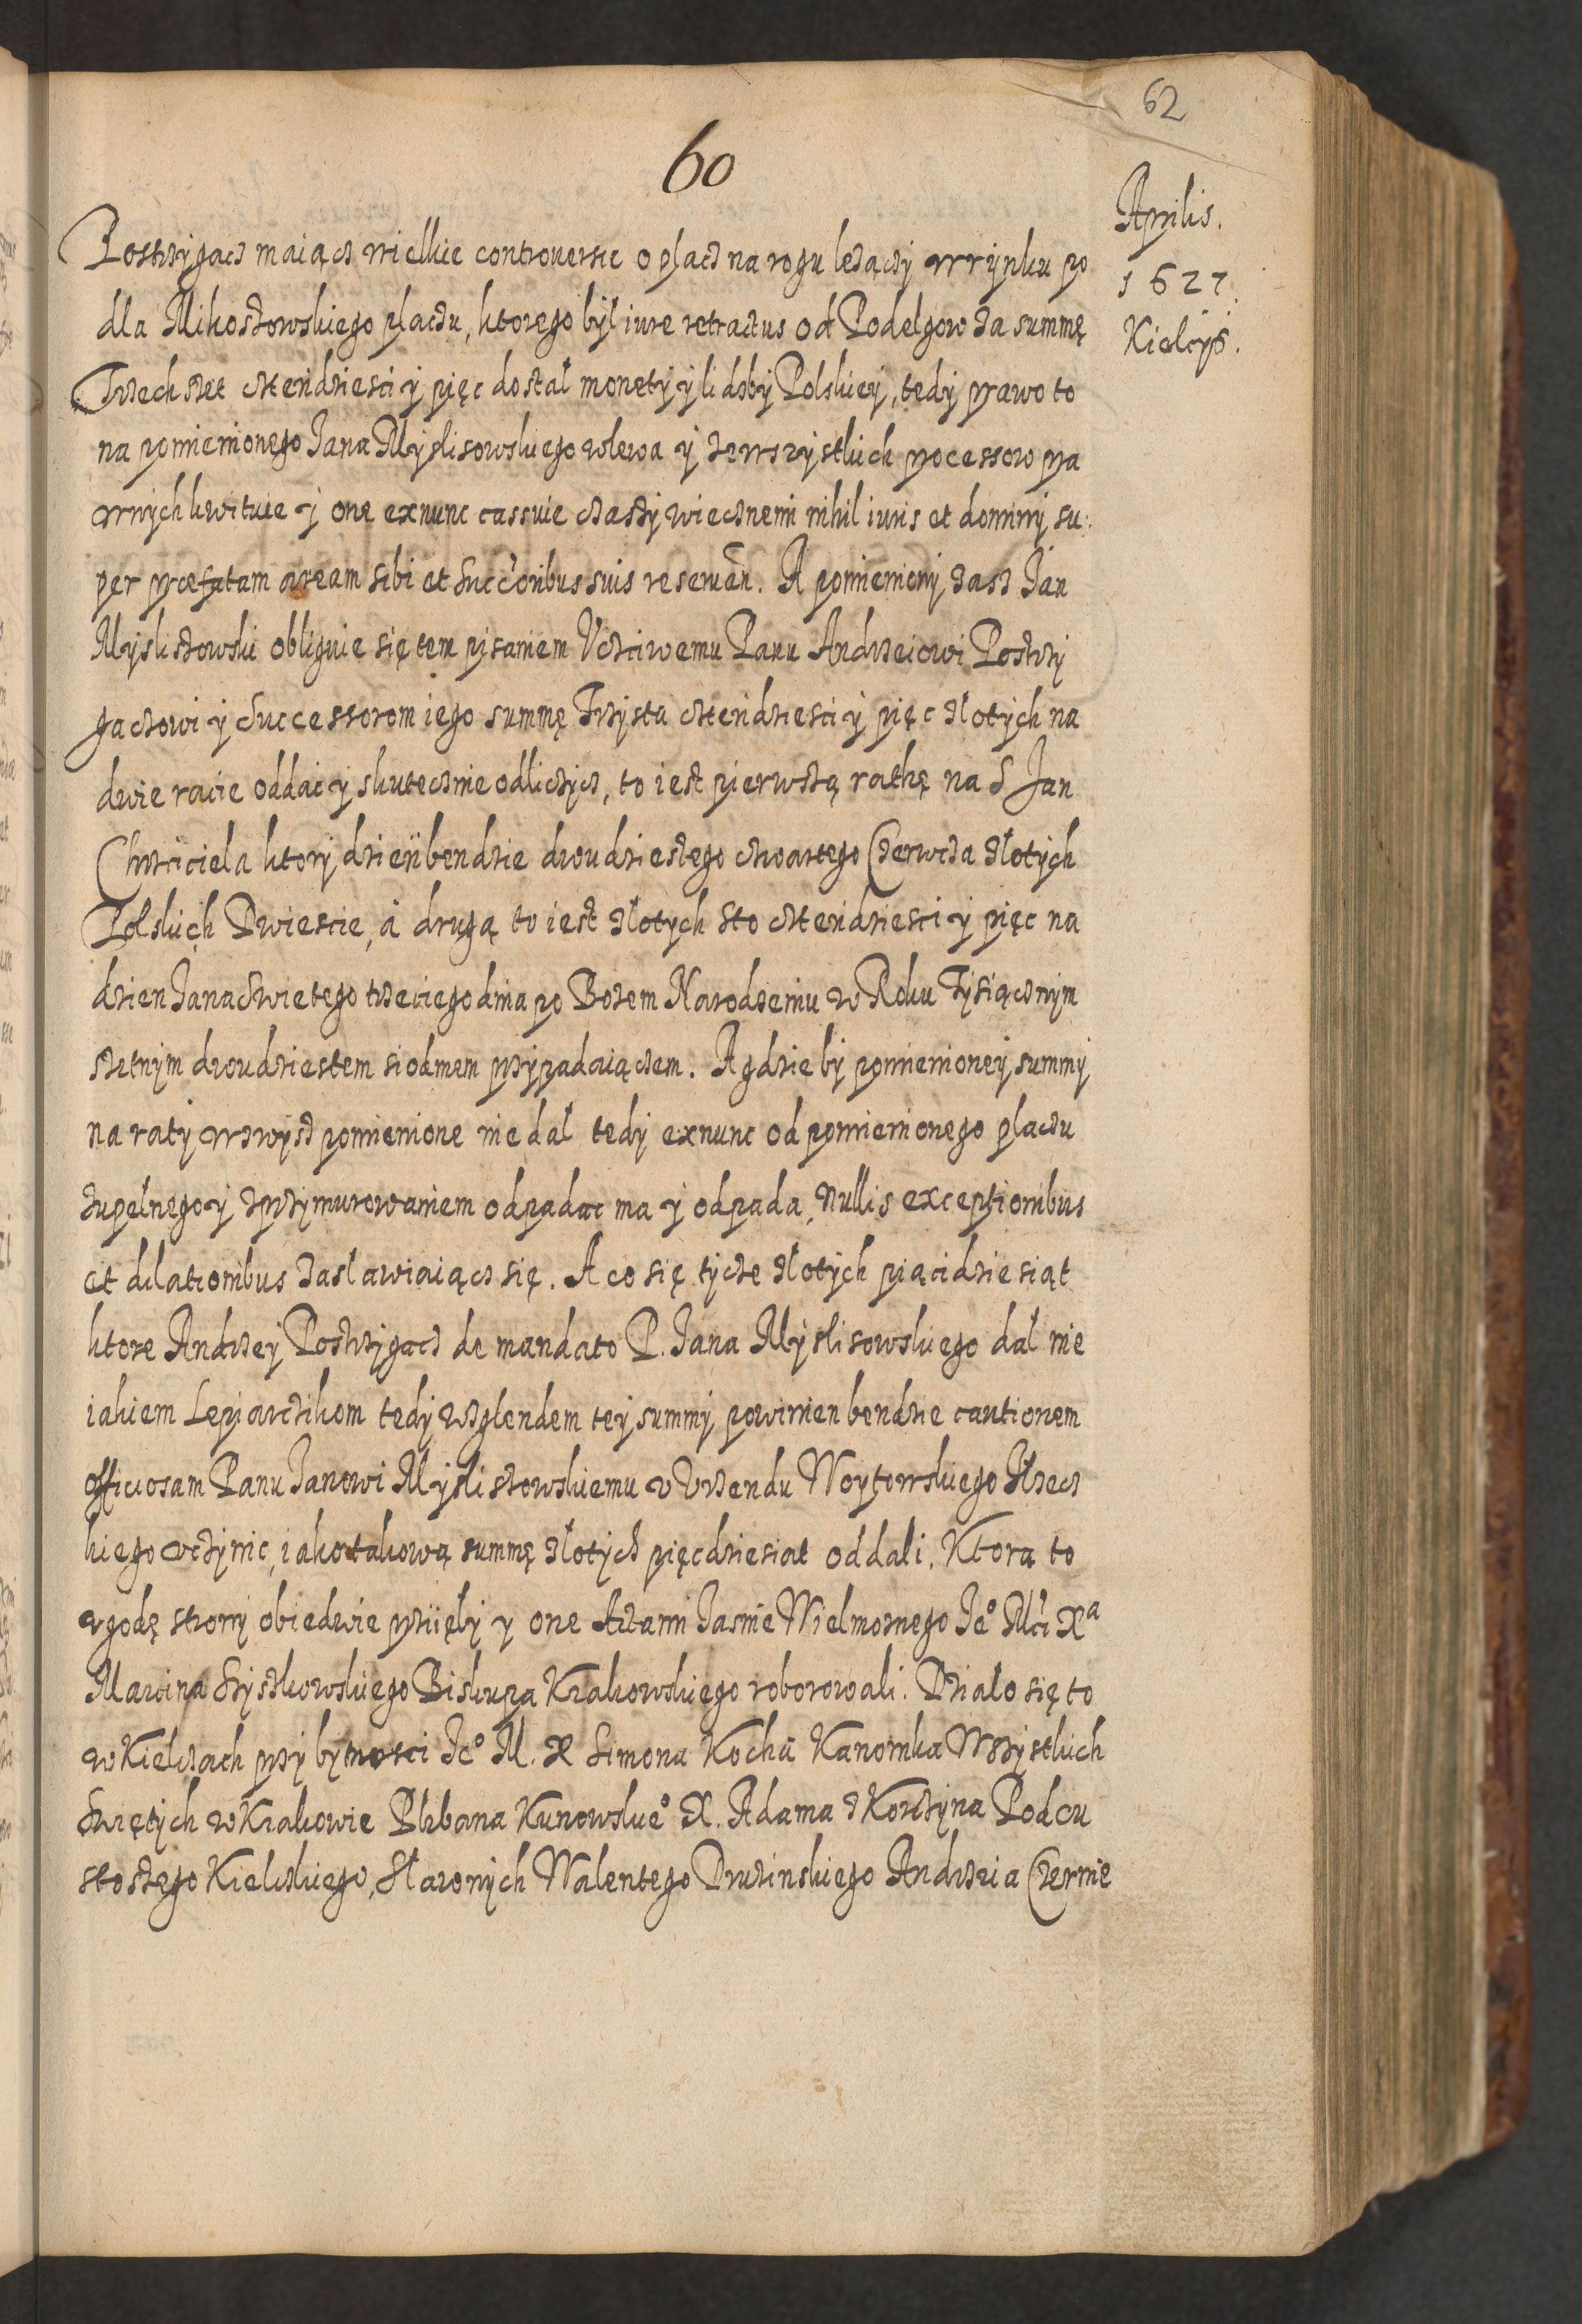 62
60
Aprilis.
1627.
Kielcys.
Postrzygacz maiącz wielkie controuersie o placz na rogu lezączy w rynku po
dla Mikoszowskiego placzu, ktorego był iure retractus od Podelgow za summę
Trzech set czterdziesci y pięc dostał monety y liczby Polskiey, tedy prawo to
na pomienionego Jana Myslisowskiego wlewa y ze wszystkich processow pra
wnych kwituie y onę exnunc cassuie czasy wiecznemi nihil iuris et dominij su:
per praefatam aream sibi et Succ̃oribus suis reseruen̄. A pomieniony zasz Jan
Myslisowski obliguie się tem pisaniem Vczciwemu Panu Andrzeiowi Postrzy
gaczowi y Successorom iego summę Trzysta czterdziesci y pięc złotych na
dwie racie oddac y skutecznie odliczycz, to iest pierwszą rathę na S Jan
Chrzciciela ktory dzień bendzie dwudziestego czwartego Czerwcza złotych
Polskich Dwiescie, a drugą to iest złotych sto czterdziesci y pięc na
dzien Jana Swietego trzeciego dnia po Bozem Narodzeniu w Roku Tysiącznym
szetnym dwudziestem siodmem przypadaiączem. A gdzie by pomienioney summy
na raty wzwysz pomienione nie dał tedy exnunc od pomienionego placzu
zupełnego y z przymurowaniem odpadac ma y odpada, nullis exceptionibus
et dilationibus zasławiaiącz się. A co się tycze złotych pięcidziesiąt
ktore Andrzey Postrzygacz de mandato P. Jana Myslisowskiego dał nie
iakiem Lepiarczikom tedy względem tey summy powinien bendzie cautionem
officiosam Panu Janowi Myslisowskiemu v Vrzendu Woytowskiego Iłzecz
kiego vczynic, iako takową summę złotych pięcdziesiat oddali. Ktora to
vgodę strony obiedwie przięły y one Actami Jasnie Wielmoznego Je° Mci Xa
Marcina Szyszkowskiego Biskupa Krakowskiego roborowali. Działo się to
w Kielczach przy bytnosci Je° M. X Simona Kocha Kanonika Wszystkich
Swiętych w Krakowie Plebana Kunowskie° X. Adama z Korczyna Podcu
stoszego Kieleckiego, Sławonych Walentego Druzinskiego Andrzeia Czernie